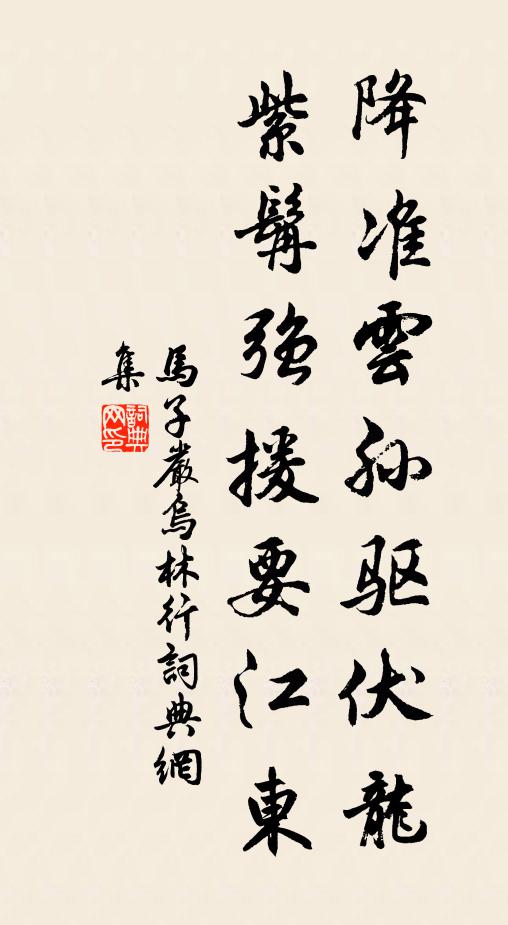 降准雲孙驱伏龍
紫髯强援要江東
馬子嚴烏林行詞典網
集
詞典
网印